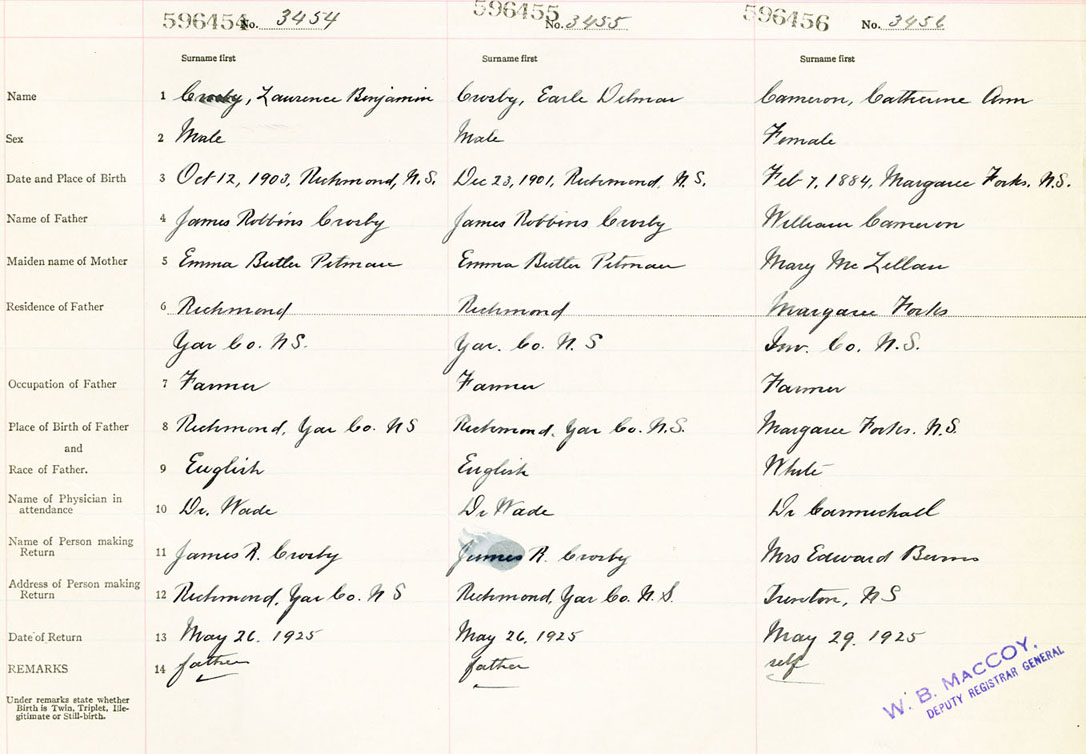 596454 No. 3454 596455 No. 3455 596456 No. 3456
Surname first Surname first Surname first
Name 1 Crosby, Laurence Benjamin Crosby, Earle Delmar Cameron, Catherine Ann
Sex 2 Male Male Female
Date and Place of Birth 3 Oct 12, 1903, Richmond, N.S. Dec 23, 1901, Richmond, N.S. Feb 7, 1884, Margaree Forks, N.S.
Name of Father 4 James Robbins Crosby James Robbins Crosby William Cameron
Maiden name of Mother 5 Emma Butler Pitman Emma Butler Pitman Mary McLellan
Residence of Father 6 Richmond Richmond Margaree Forks
Yar Co. N.S. Yar. Co. N.S Inv. Co. N.S.
Occupation of Father 7 Farmer Farmer Farmer
Place of Birth of Father 8 Richmond, Yar Co. NS Richmond, Yar Co. N.S. Margaree Forks. N.S.
and
Race of Father. 9 English English White
Name of Physician in
attendance 10 Dr. Wade Dr Wade Dr Carmichall
Name of Person making
Return 11 James R. Crosby James R. Crosby Mrs Edward Burns
Address of Person making
Return 12 Richmond, Yar Co. N S Richmond, Yar Co. N.S. Trenton, NS
Date of Return 13 May 26, 1925 May 26, 1925 May 29, 1925
REMARKS 14 father father self
Under remarks state whether
Birth is Twin, Triplet, Ille-
gitimate or Still-birth.
W. B. MACCOY,
DEPUTY REGISTRAR GENERAL